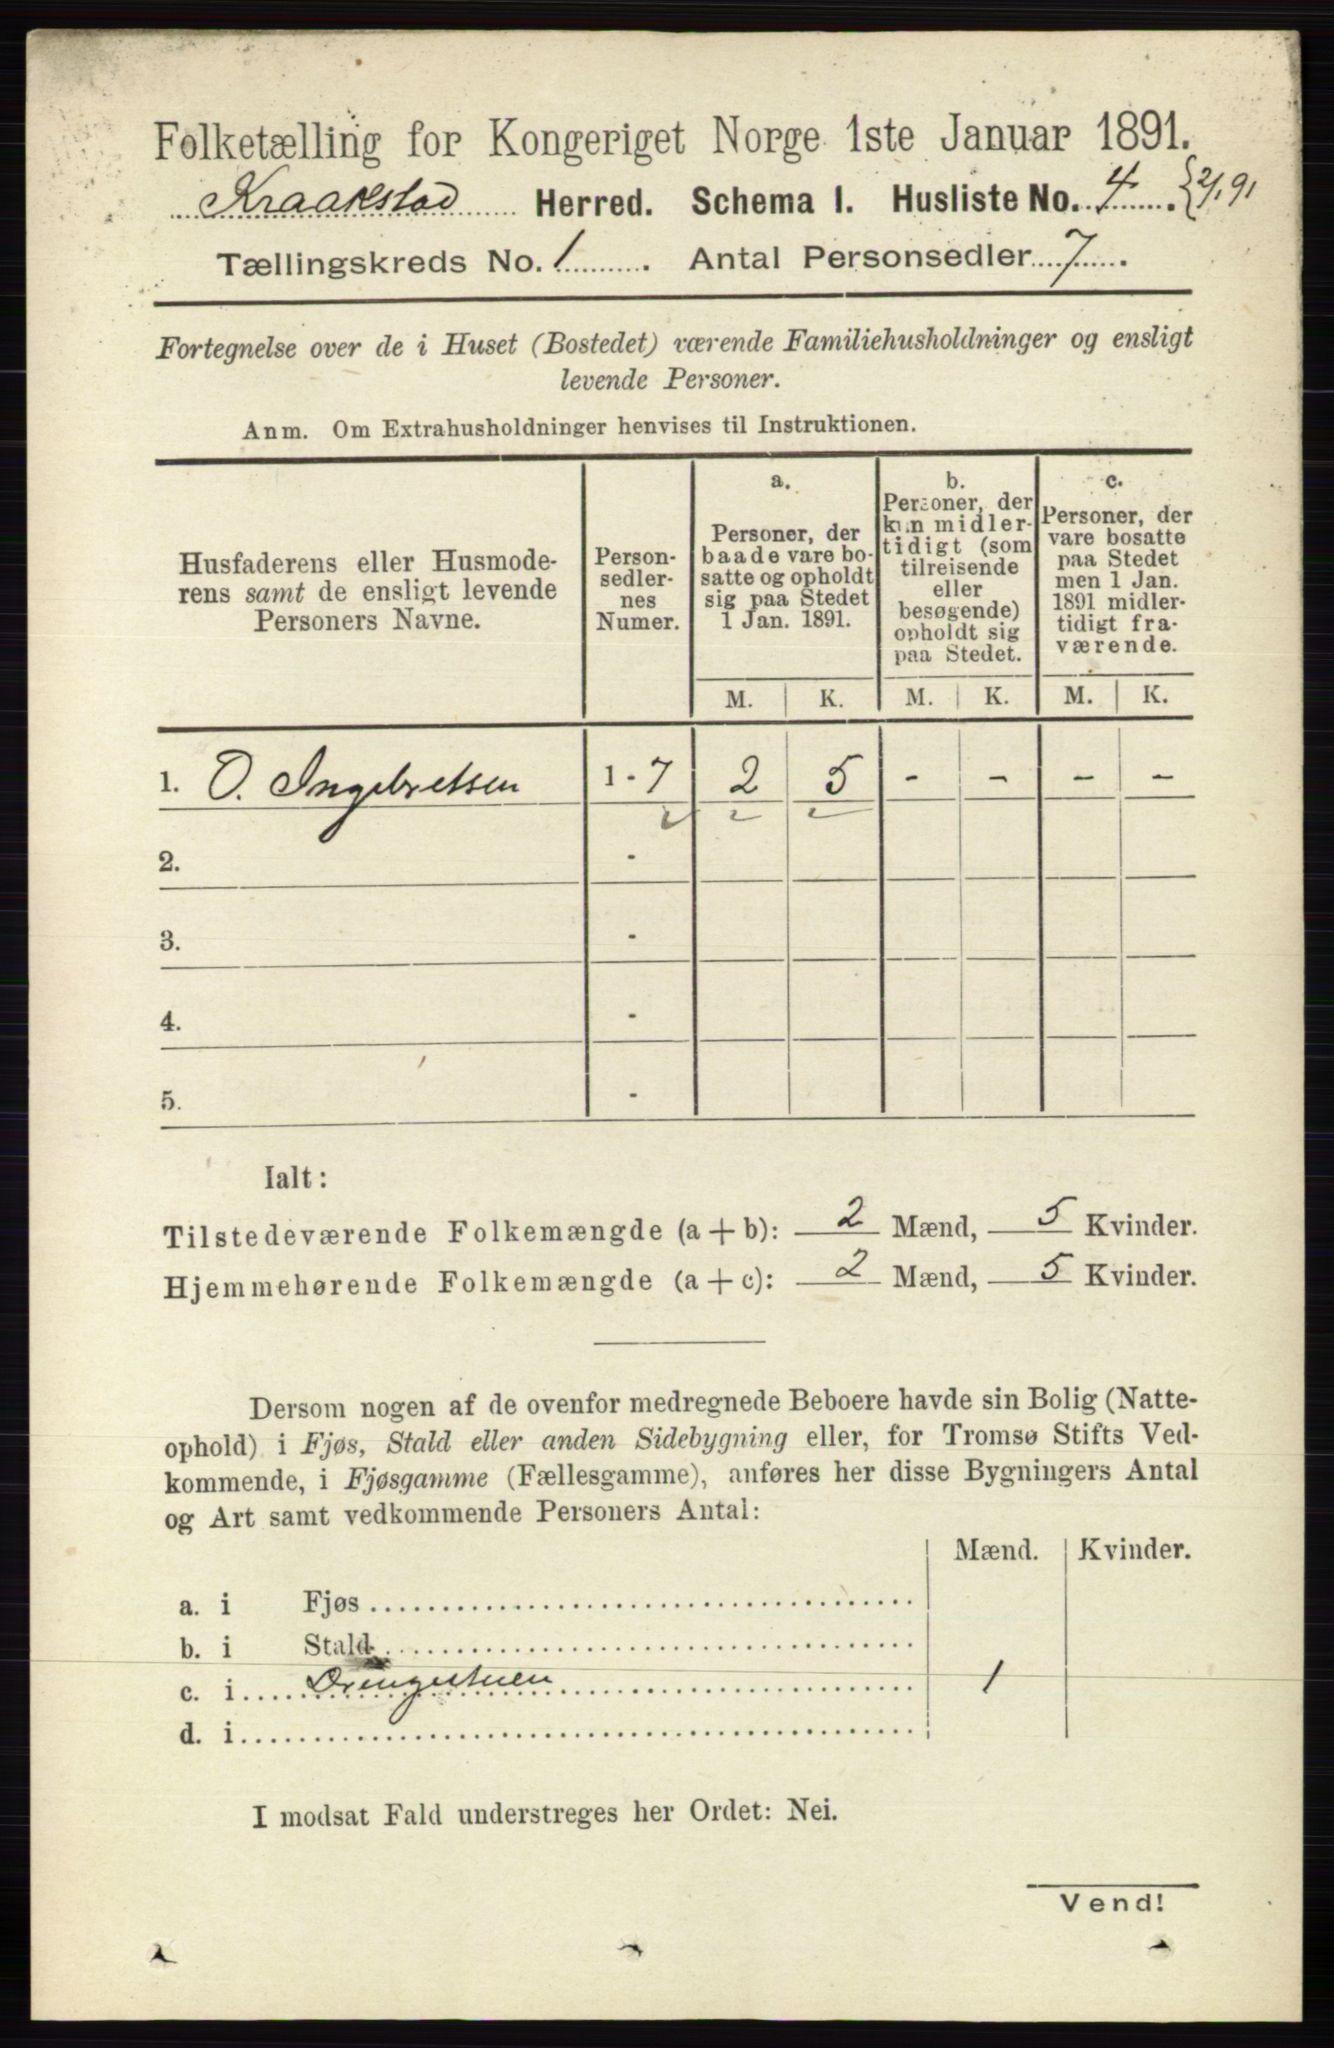 Folketælling for Kongeriget Norge 1ste Januar 1891.
Kraakstad Herred. Schema 1. Husliste No. 4. {2/1 91
Tællingskreds No. 1. Antal Personsedler 7.
Fortegnelse over de i Huset (Bostedet) værende Familiehusholdninger og ensligt
levende Personer.
Anm. Om Extrahusholdninger henvises til Instruktionen.
Husfaderens eller Husmode-
rens samt de ensligt levende
Personers Navne.
Person-
sedler-
nes
Numer.
a.
Personer, der
baade vare bo-
satte og opholdt
sig paa Stedet
1 Jan. 1891.
b.
Personer, der
kun midler-
tidigt (som
tilreisende
eller
besøgende)
opholdt sig
paa Stedet.
c.
Personer, der
vare bosatte
paa Stedet
men 1 Jan.
1891 midler-
tidigt fra-
værende.
M. K. M. K. M. K.
1. O. Ingebretsen 1 - 7 2 5 - - - -
2. -
3. -
4. -
5. -
Ialt:
Tilstedeværende Folkemængde (a + b): 2 Mænd, 5 Kvinder.
Hjemmehørende Folkemængde (a + c): 2 Mænd, 5 Kvinder.
Dersom nogen af de ovenfor medregnede Beboere havde sin Bolig (Natte-
ophold) i Fjøs, Stald eller anden Sidebygning eller, for Tromsø Stifts Ved-
kommende, i Fjøsgamme (Fællesgamme), anføres her disse Bygningers Antal
og Art samt vedkommende Personers Antal:
Mænd. Kvinder.
a. i Fjøs
b. i Stald
c. i Drengestuen 1
d. i
I modsat Fald understreges her Ordet: Nei.
Vend!